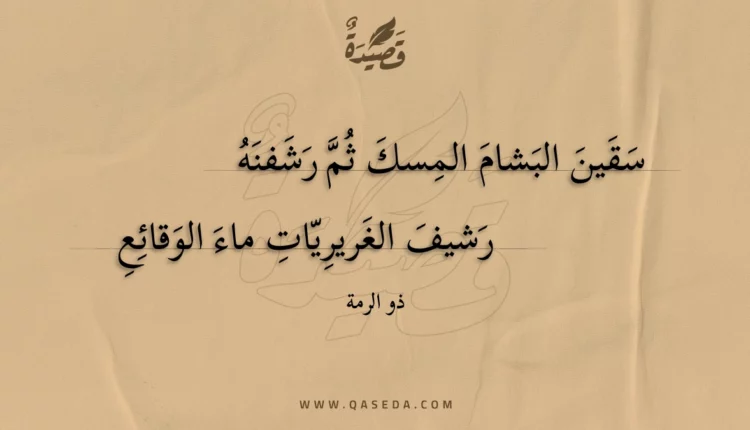 قَصِيدَةٌ
سَقَينَ البَشامَ المِسكَ ثُمَّ رَشَفنَهُ
رَشيفَ الغَريرِيّاتِ ماءَ الوَقائِعِ
ذو الرمة
WWW.QASEDA.COM